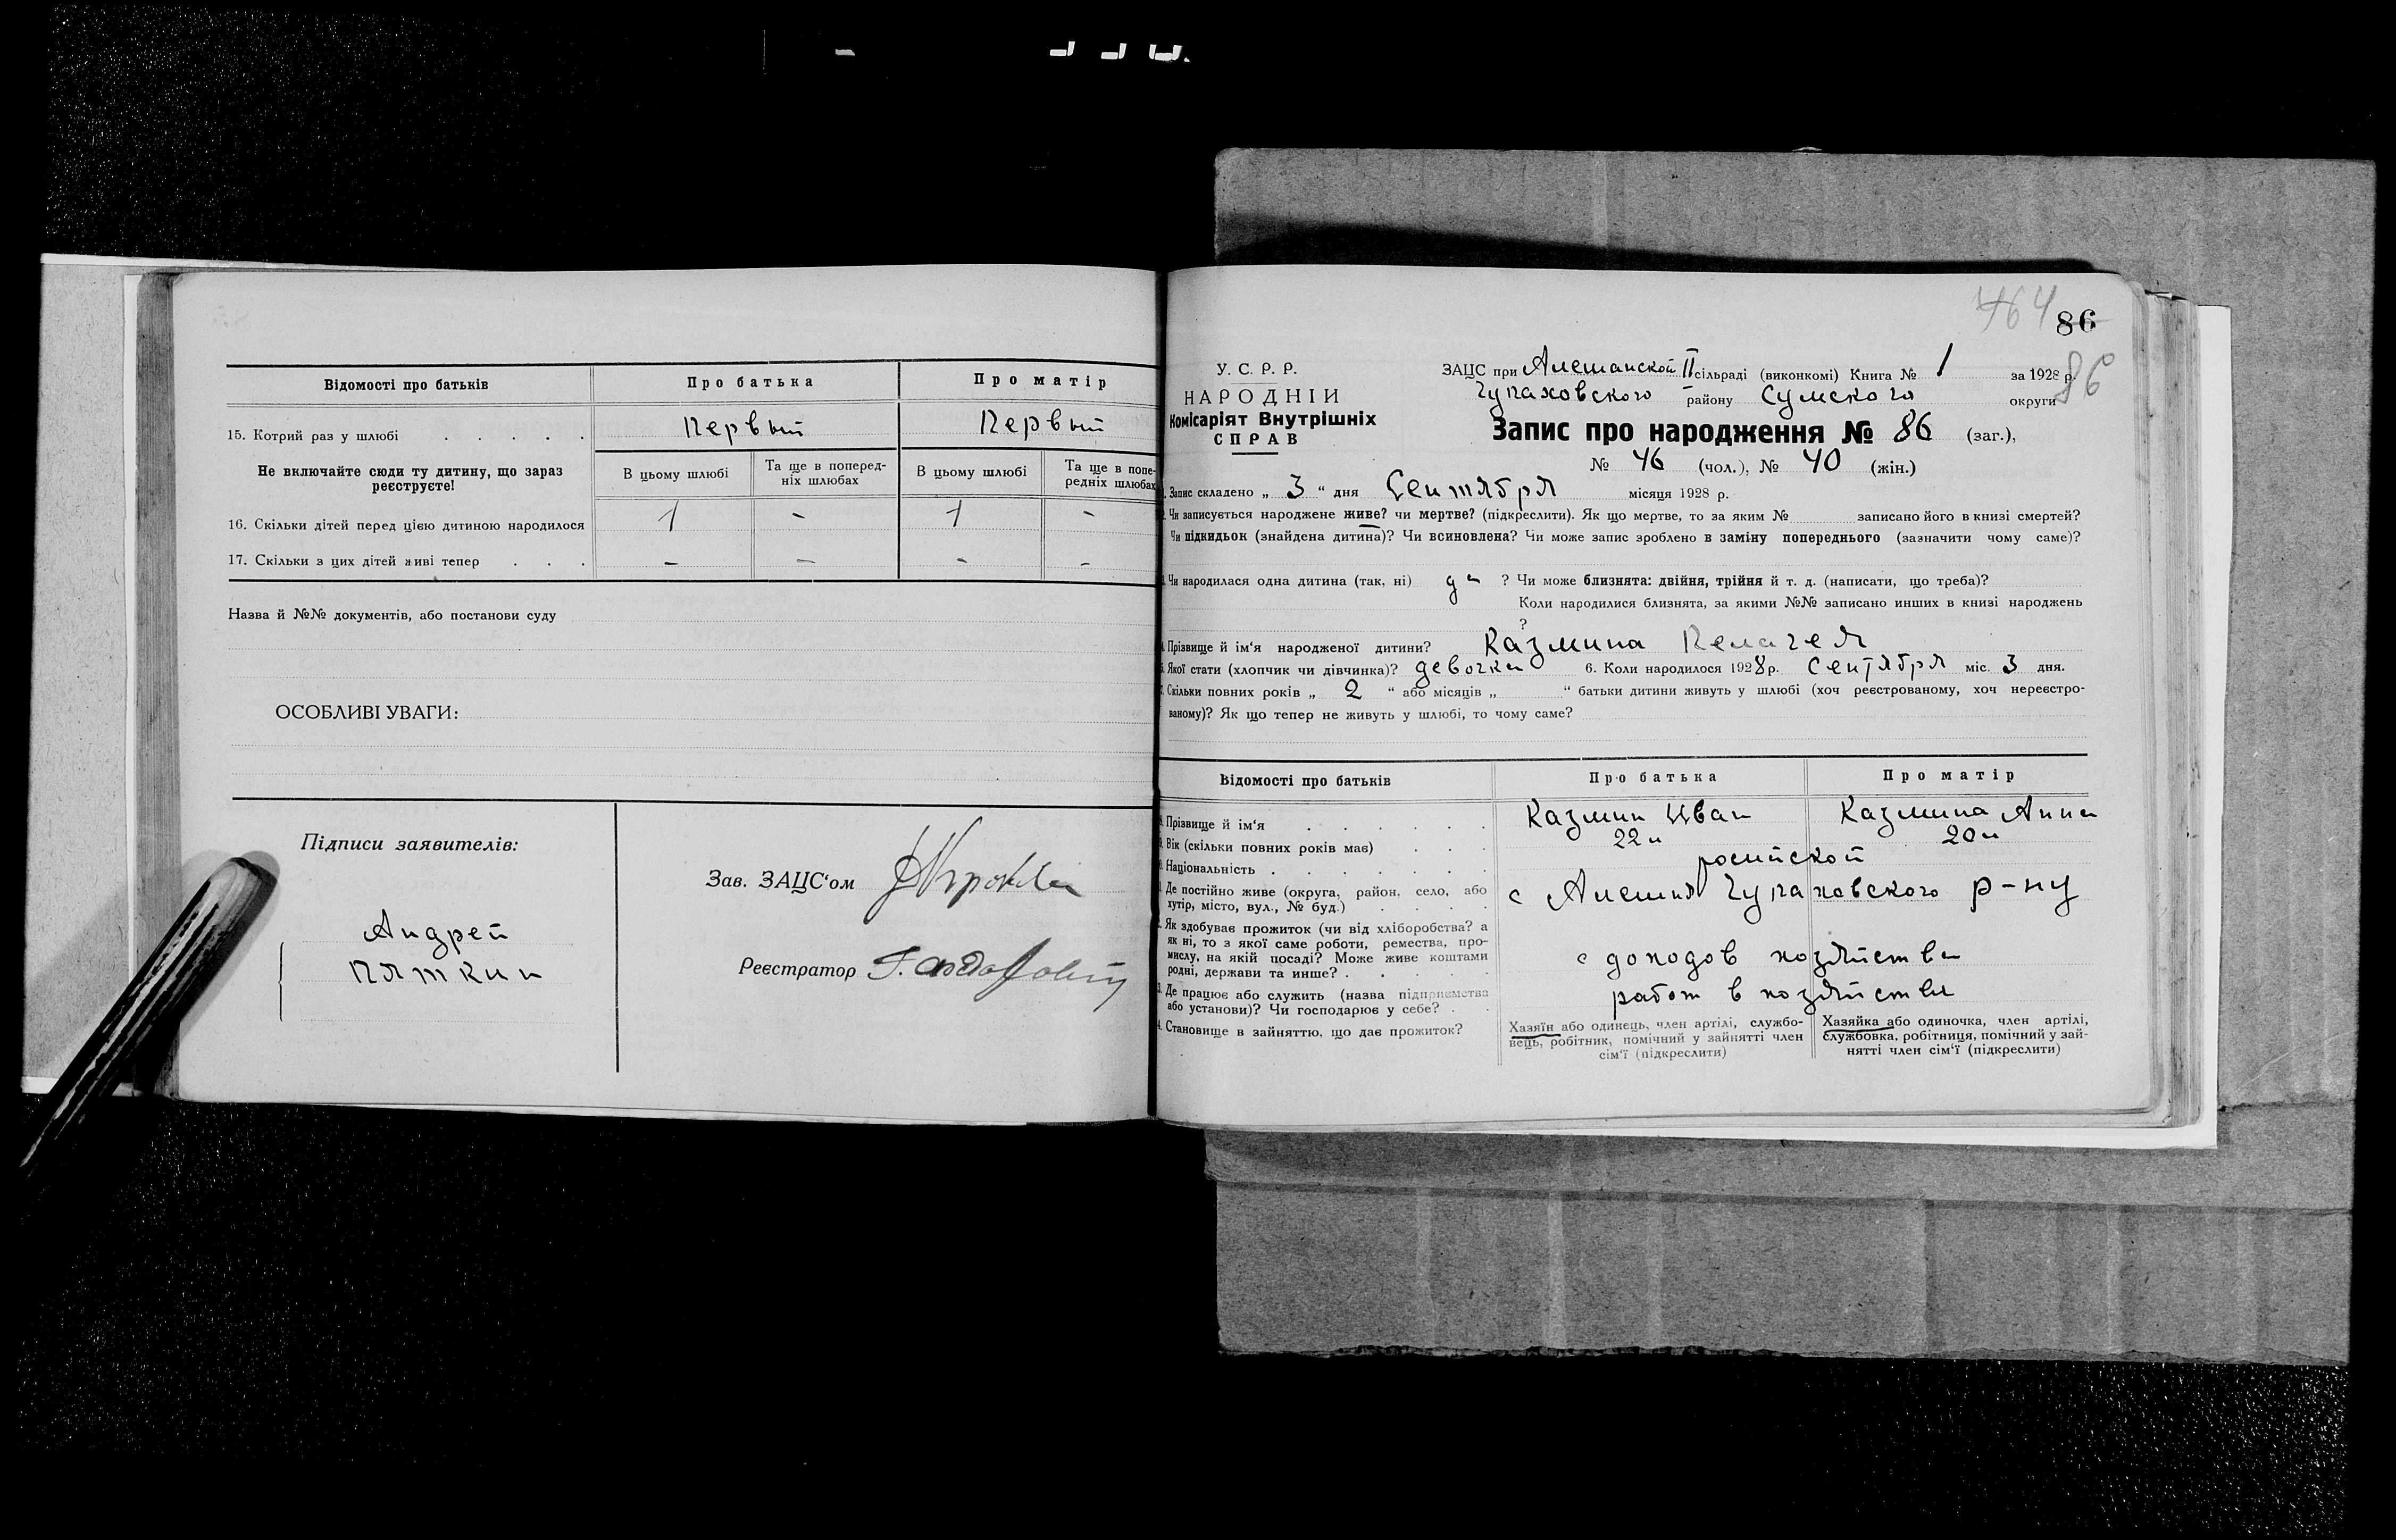 Відомості про батьків
Про батька
Про матір
15. Котрий раз у шлюбі . . . . .
Первый
Первый
Не включайте сюди ту дитину, що зараз реєструєте!
В цьому шлюбі
Та ще в поперед-
ніх шлюбах
В цьому шлюбі
Та ще в попе-
редніх шлюбах
16. Скільки дітей перед цією дитиною народилося
1
-
1
-
17. Скільки з цих дітей живі тепер . . .
-
-
-
-
Назва й №№ документів, або постанови суду
ОСОБЛИВІ УВАГИ:
Підписи заявителів:
Андрей
Пяткин
Зав. ЗАЦС'ом
Реєстратор
464
86
86
У. С. Р. Р.
НАРОДНІЙ
Комісаріят Внутрішніх
СПРАВ
ЗАЦС при Алешанской II сільраді (виконкомі) Книга № 1 за 1928 р.
Чупаховского району Сумского округи
Запис про народження № 86 (заг.),
№ 46 (чол.), № 40 (жін.)
Запис складено „ 3 “ дня Сентября місяця 1928 р.
Чи записується народжене живе? чи мертве? (підкреслити). Як що мертве, то за яким № записано його в книзі смертей?
Чи підкидьок (знайдена дитина)? Чи всиновлена? Чи може запис зроблено в заміну попереднього (зазначити чому саме)?
Чи народилася одна дитина (так, ні) да ? Чи може близнята: двійня, трійня й т. д. (написати, що треба)?
Коли народилися близнята, за якими №№ записано инших в книзі народжень
?
Прізвище й ім'я народженої дитини? Казмина Пелагея
Якої стати (хлопчик чи дівчинка)? девочка 6. Коли народилося 1928 р. Сентября міс. 3 дня.
Скільки повних років „ 2 “ або місяців „ “ батьки дитини живуть у шлюбі (хоч реєстрованому, хоч нереєстро-
ваному)? Як що тепер не живуть у шлюбі, то чому саме?
Відомості про батьків
Про батька
Про матір
Прізвище й ім'я . . . . . .
Казмин Иван
Казмина Анна
Вік (скільки повних років має) . . .
22
20
Національність . . . . . . .
росийской
Де постійно живе (округа, район, село, або
хутір, місто, вул., № буд.) . . . .
с Алешня Чупаховского р-ну
Як здобуває прожиток (чи від хліборобства? а
як ні, то з якої саме роботи, ремества, про-
мислу, на якій посаді? Може живе коштами
родні, держави та инше? . . . . .
с доходов хозяйства
Де працює або служить (назва підприємства
або установи)? Чи господарює у себе? . .
работ в хозяйстве
Становище в зайняттю, що дає прожиток?
Хазяїн або одинець, член артілі, службо-
вець, робітник, помічний у зайнятті член
сім'ї (підкреслити)
Хазяйка або одиночка, член артілі,
службовка, робітниця, помічний у зай-
нятті член сім'ї (підкреслити)